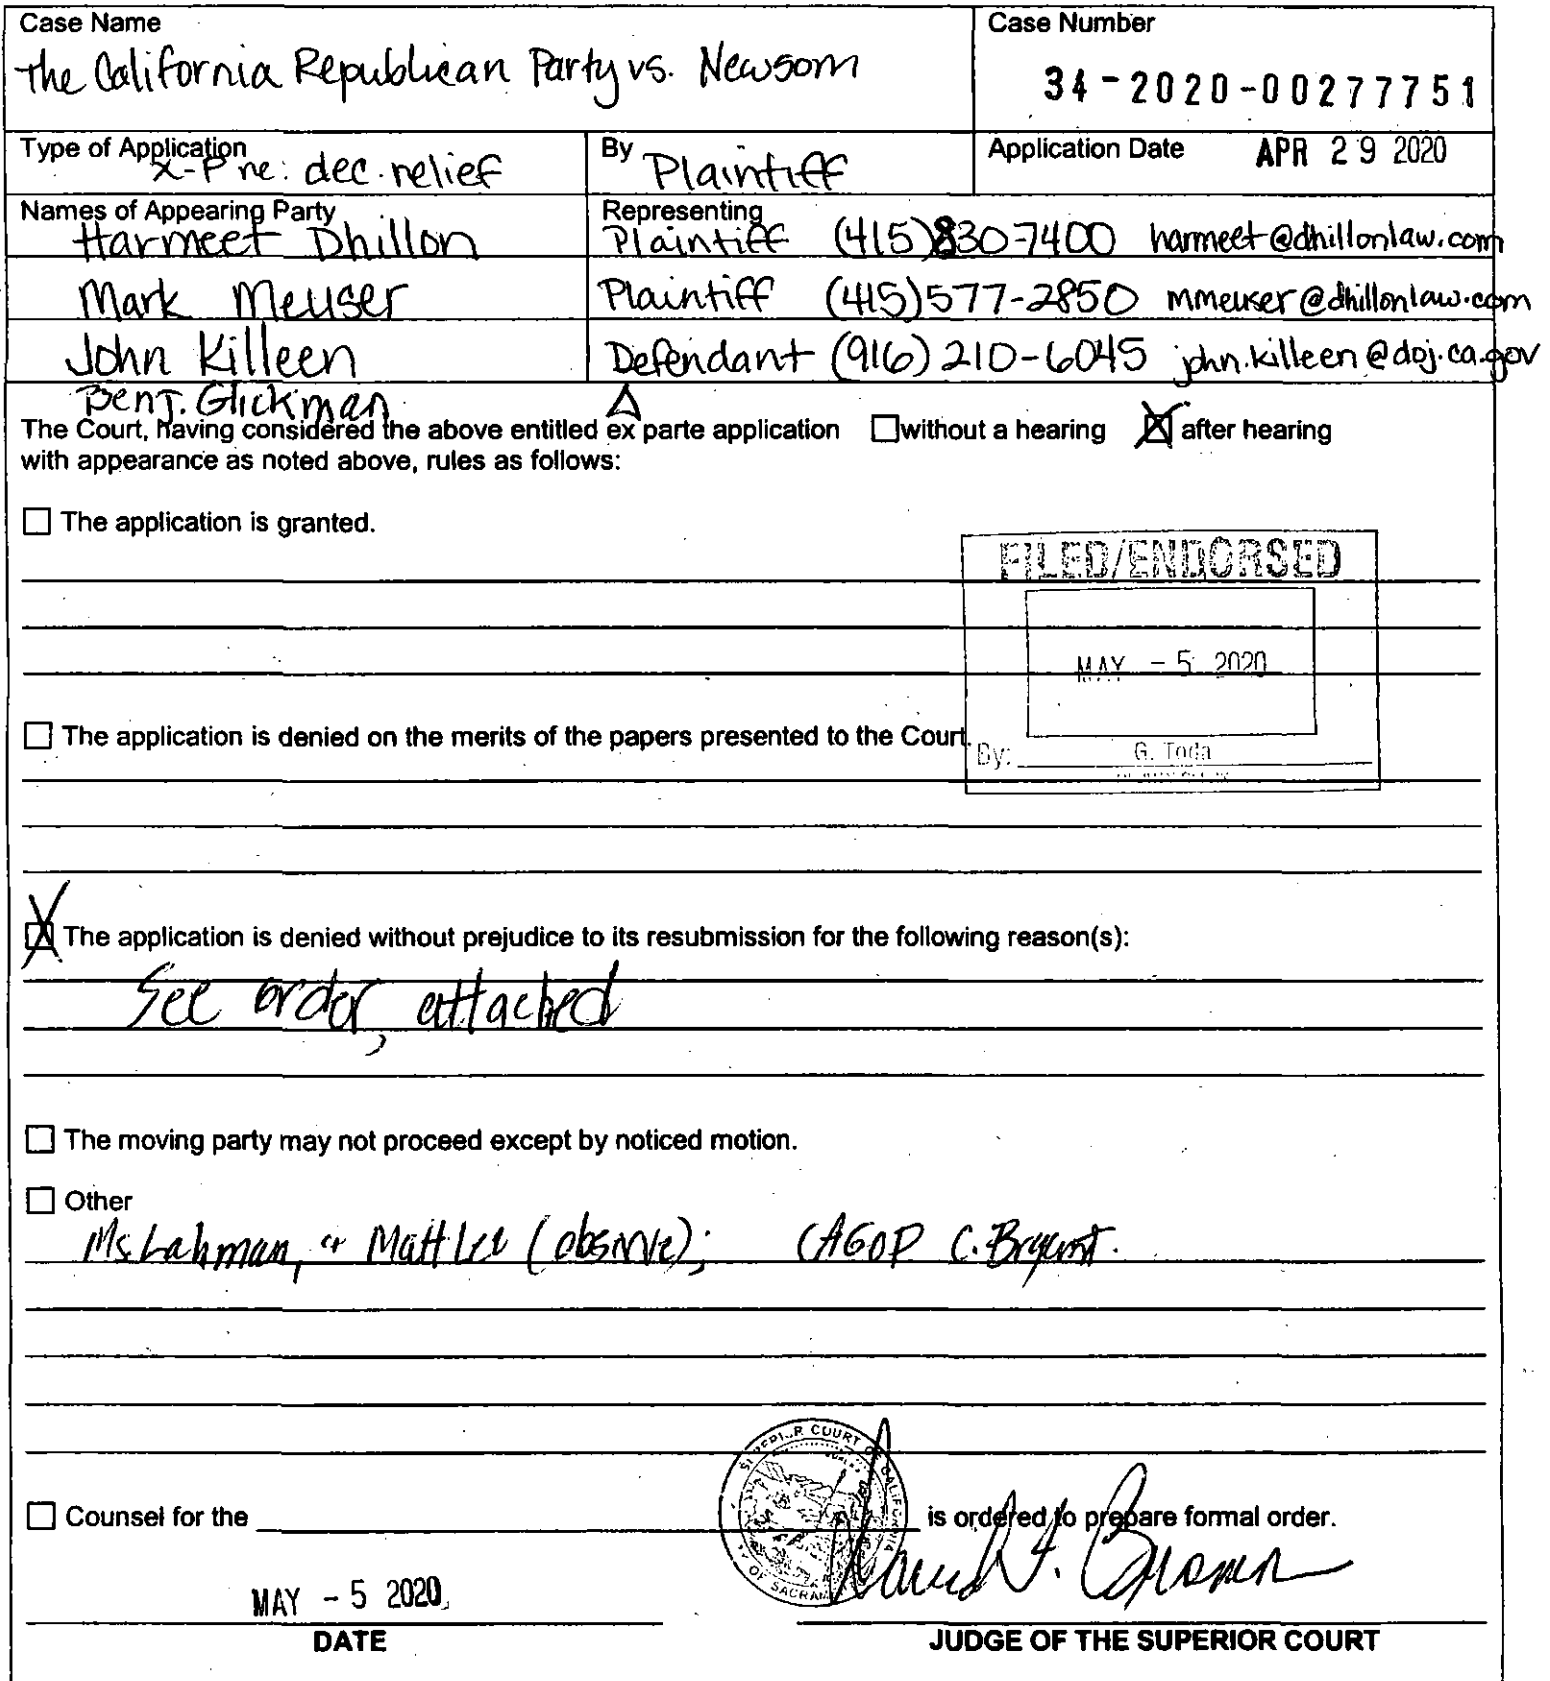 Case Name
The California Republican Party vs. Newsom
Case Number
34-2020-00277751
Type of Application
X-P re: dec. relief
By
Plaintiff
Application Date APR 29 2020
Names of Appearing Party
Representing
Harmeet Dhillon Plaintiff (415)830-7400 harmeet@dhillonlaw.com
Mark Meuser Plaintiff (415)577-2850 mmeuser@dhillonlaw.com
John Killeen Defendant (916)210-6045 john.killeen@doj.ca.gov
Benj. Glickman Δ
The Court, having considered the above entitled ex parte application ☐ without a hearing ☒ after hearing
with appearance as noted above, rules as follows:
☐ The application is granted.
FILED/ENDORSED
MAY - 5 2020
By: G. Toda
☐ The application is denied on the merits of the papers presented to the Court
☒ The application is denied without prejudice to its resubmission for the following reason(s):
See order, attached
☐ The moving party may not proceed except by noticed motion.
☐ Other
Ms. Lahman, Matt Lee (observe); CAGOP C. Bryant.
☐ Counsel for the is ordered to prepare formal order.
MAY - 5 2020
DATE
JUDGE OF THE SUPERIOR COURT